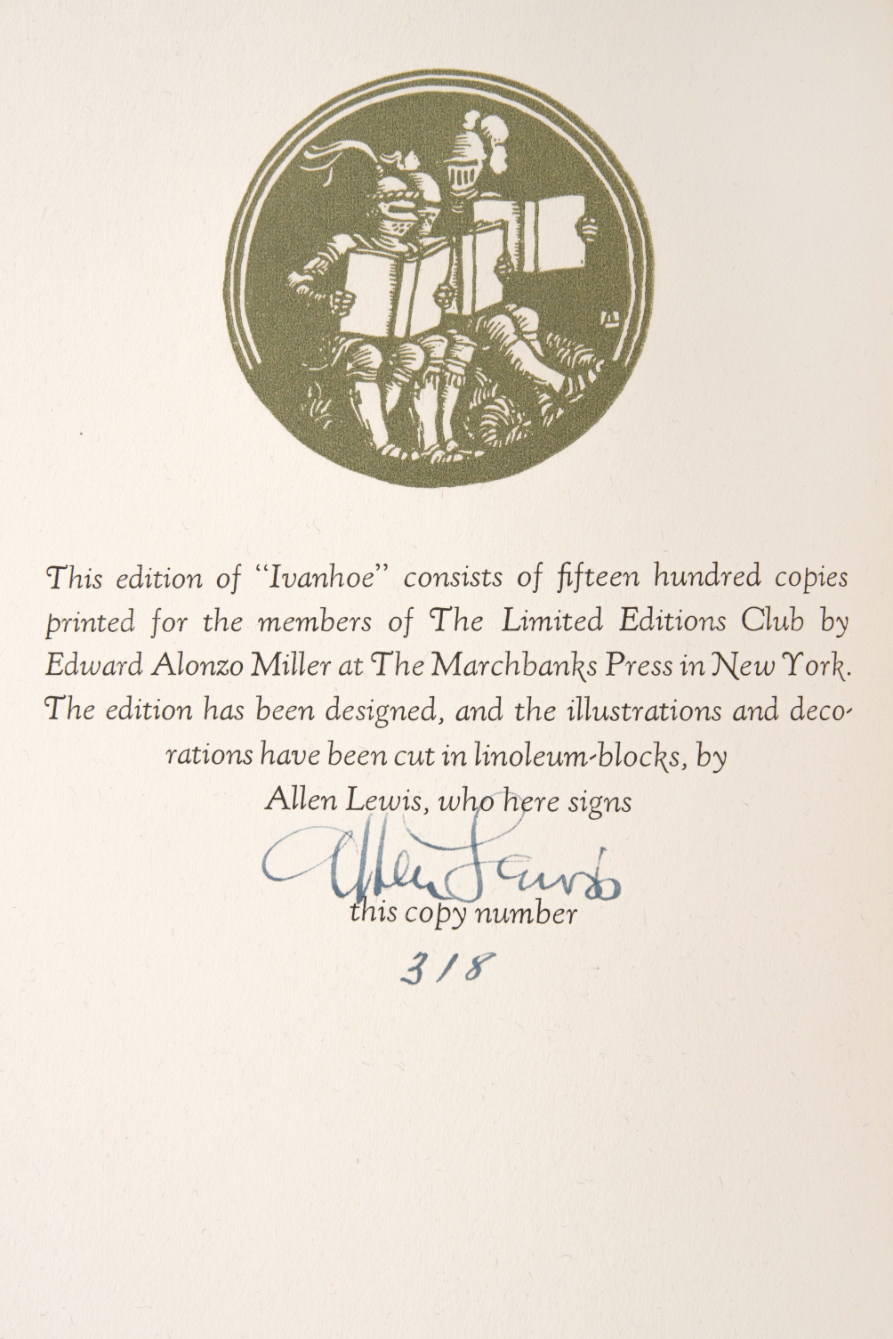 This edition of “Ivanhoe” consists of fifteen hundred copies
printed for the members of The Limited Editions Club by
Edward Alonzo Miller at The Marchbanks Press in New York.
The edition has been designed, and the illustrations and deco-
rations have been cut in linoleum-blocks, by
Allen Lewis, who here signs
Allen Lewis
this copy number
318